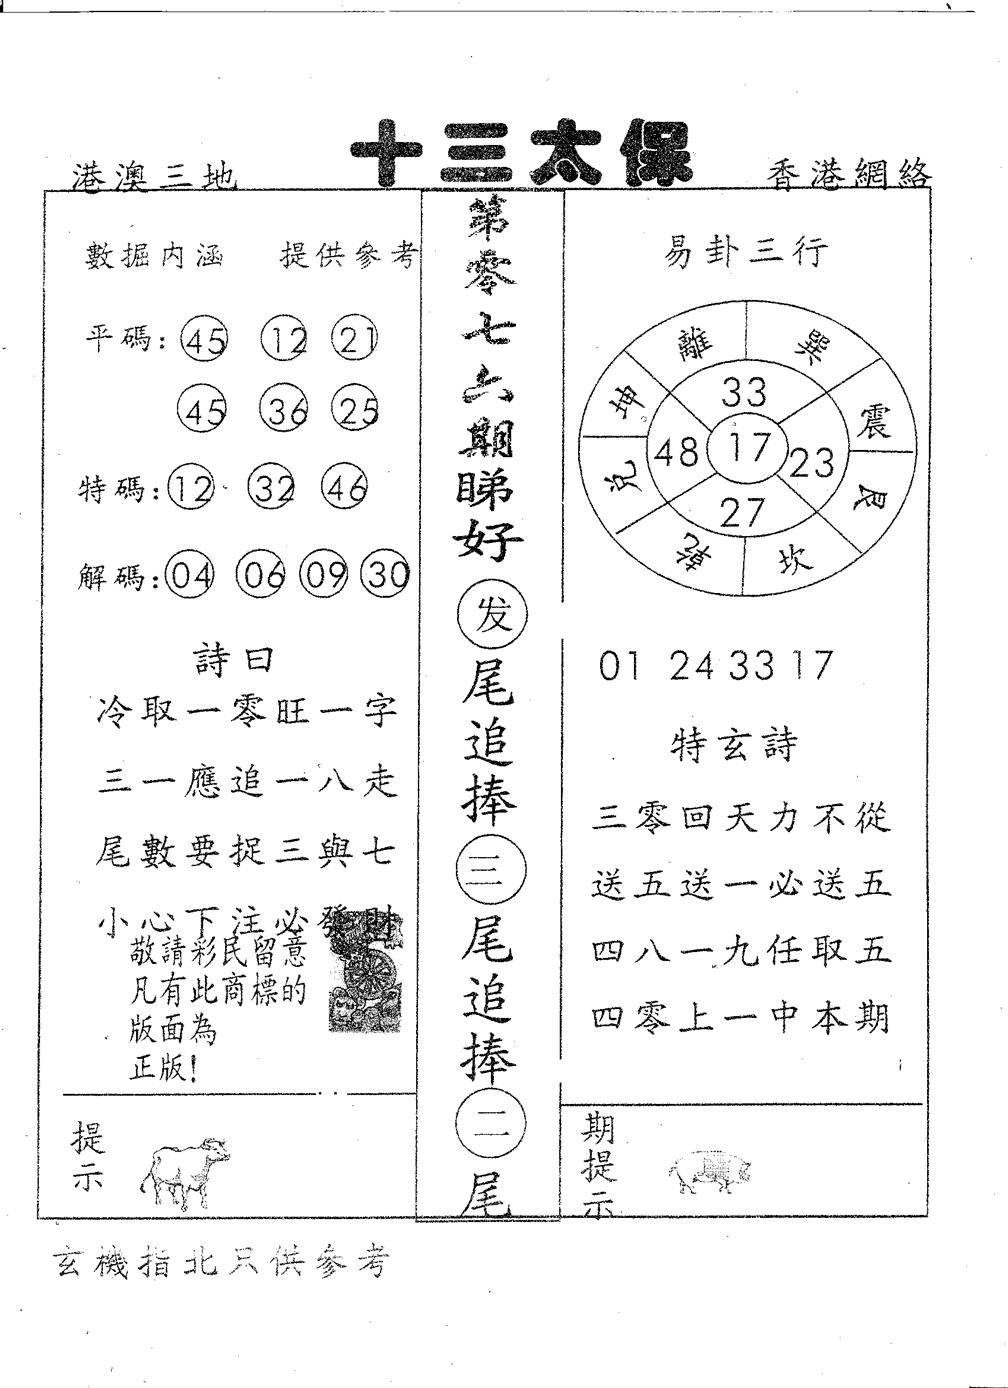 十三太保
港澳三地
香港網絡
數据内涵 提供參考
平碼: 45 12 21
45 36 25
特碼: 12 32 46
解碼: 04 06 09 30
詩曰
冷取一零旺一字
三一應追一八走
尾數要捉三與七
小心下注必發財
敬請彩民留意
凡有此商標的
版面為
正版!
提示
第零七六期睇好发尾追捧三尾追捧二尾
易卦三行
離 巽
坤 震
兌 艮
乾 坎
33
48 17 23
27
01 24 33 17
特玄詩
三零回天力不從
送五送一必送五
四八一九任取五
四零上一中本期
期提示
玄機指北只供參考